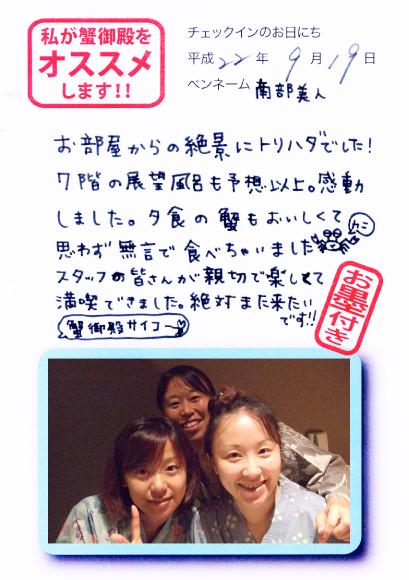 私が蟹御殿を
オススメ
します!!
チェックインのお日にち
平成 22 年 9 月 19 日
ペンネーム 南部美人
お部屋からの絶景にトリハダでした!
7階の展望風呂も予想以上。感動
しました。夕食の蟹もおいしくて
カニ
思わず無言で食べちゃいました
スタッフの皆さんが親切で楽しくて
満喫できました。絶対また来たい
です!!
蟹御殿サイコ〜
お墨付き